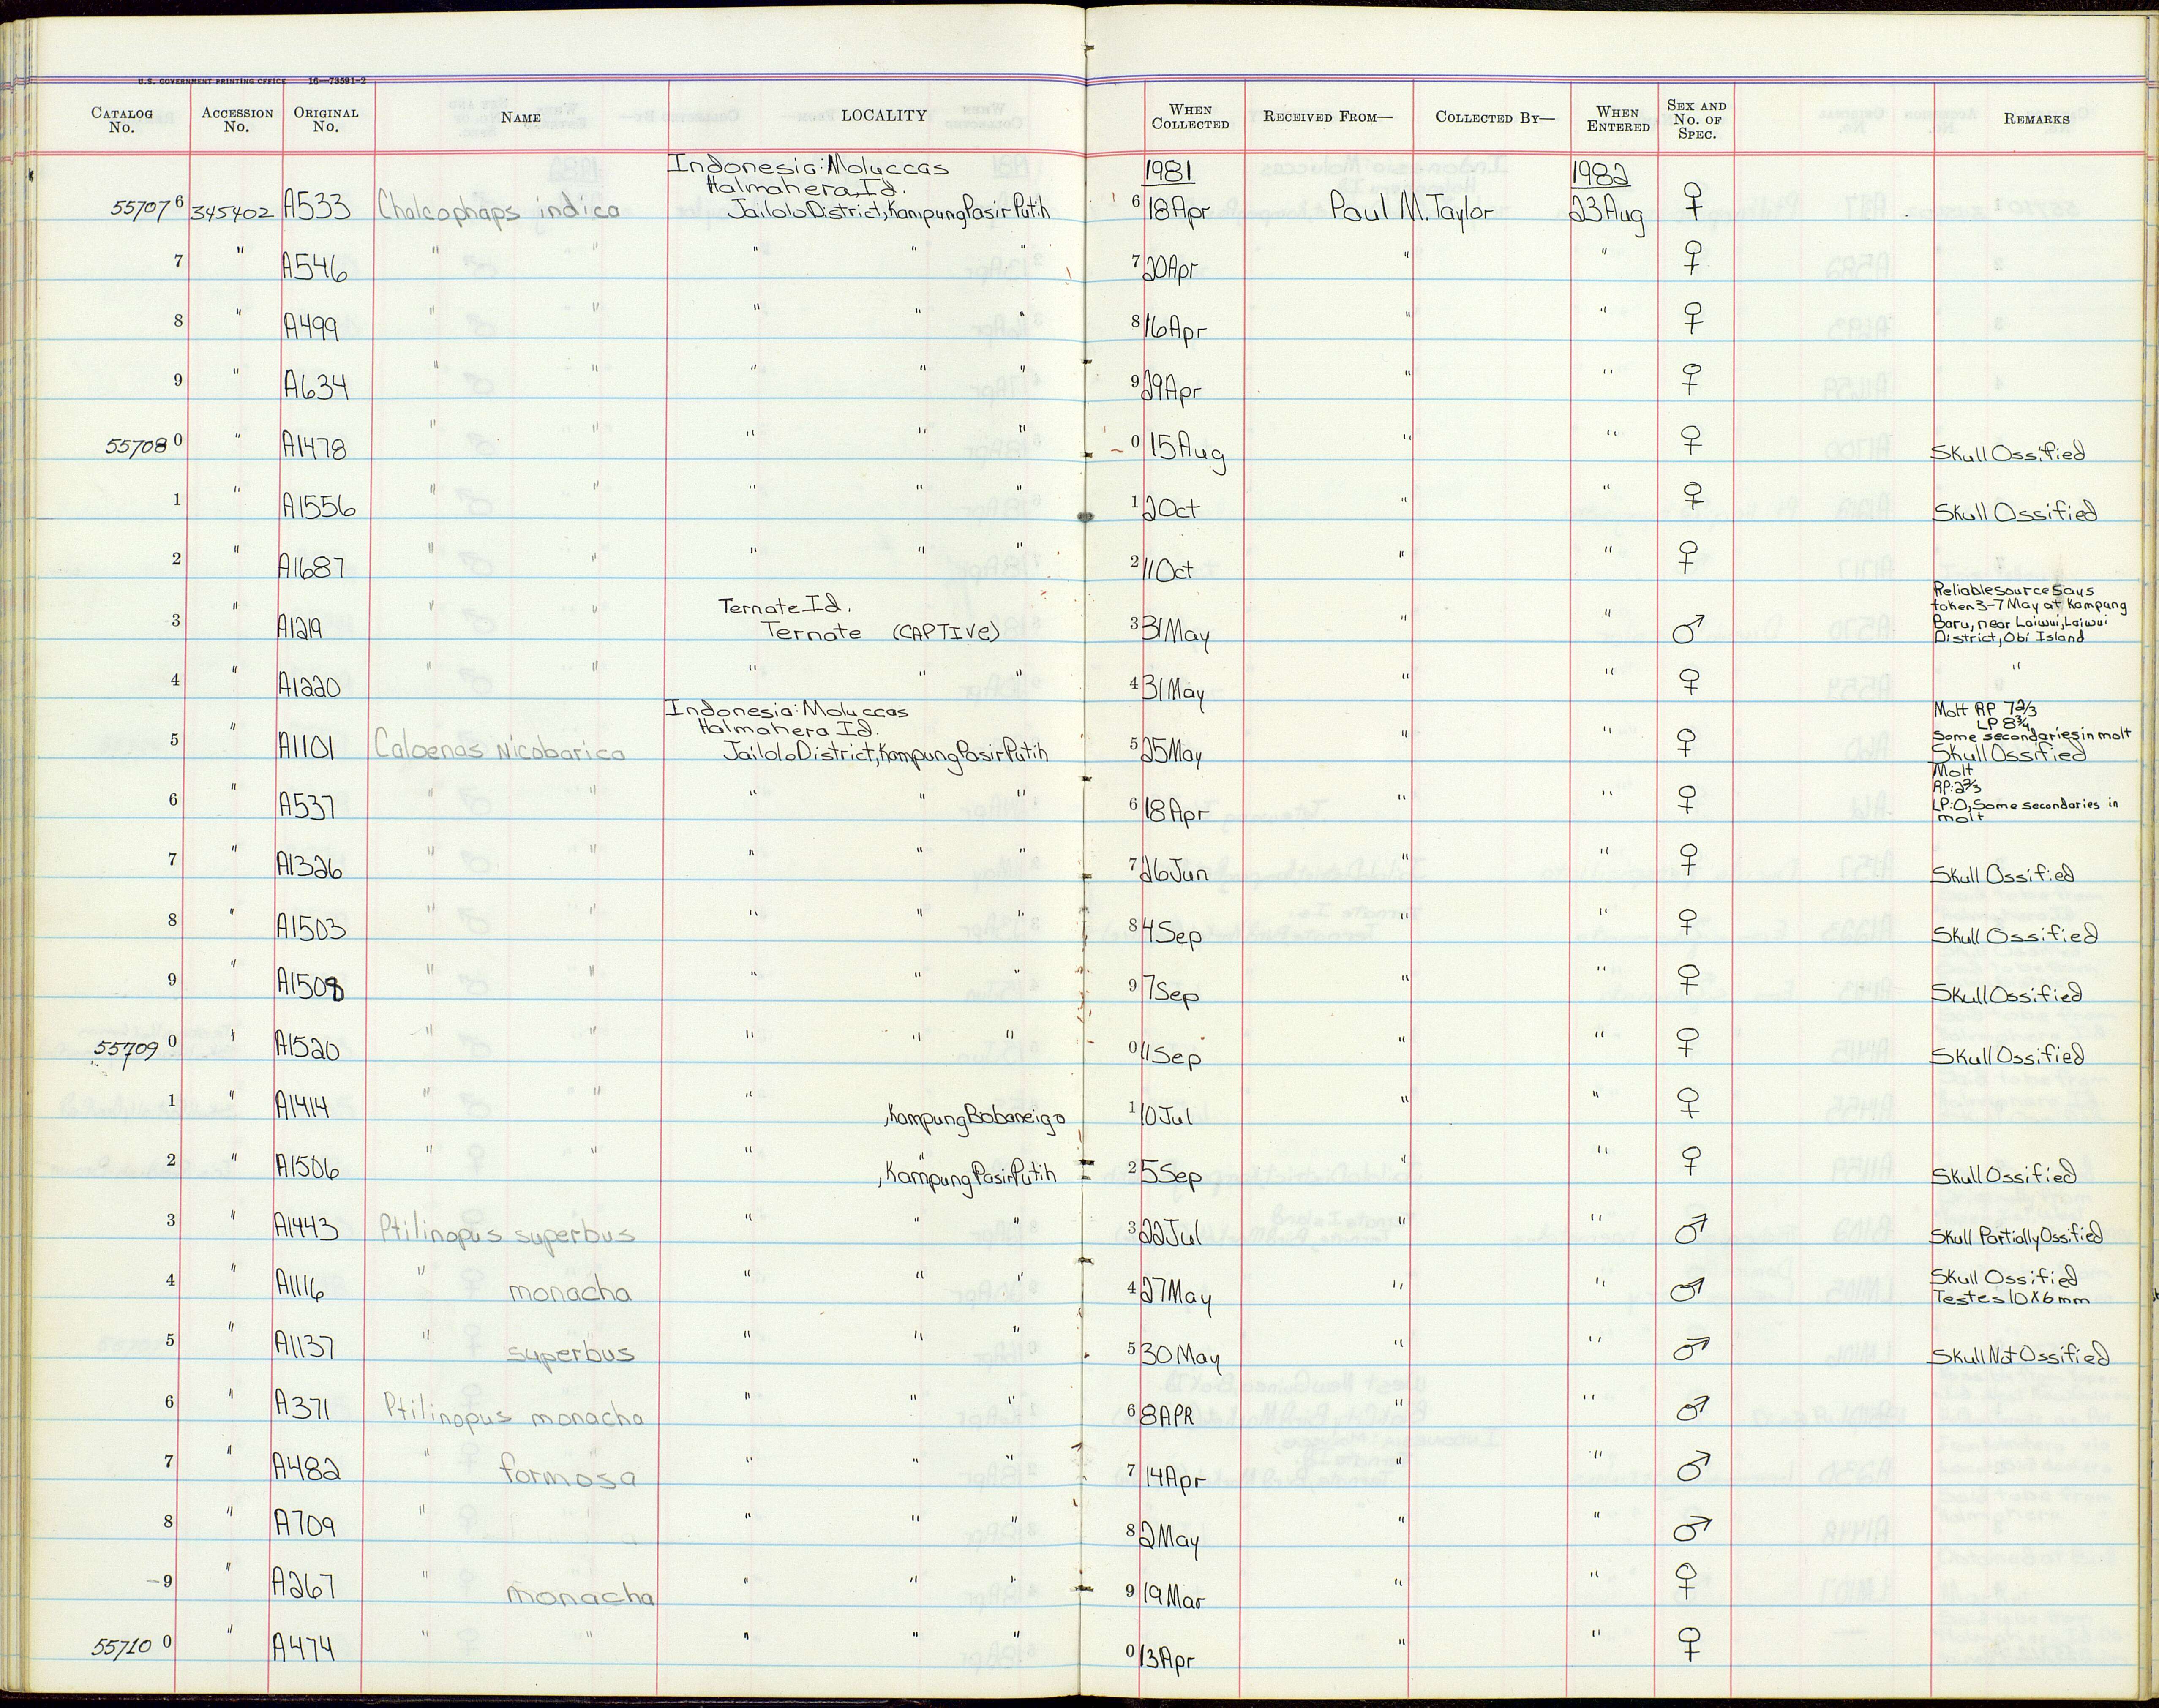 U.S. GOVERNMENT PRINTING OFFICE 16—73591-2
CATALOG No. ACCESSION No. ORIGINAL No. NAME LOCALITY WHEN COLLECTED RECEIVED FROM— COLLECTED BY— WHEN ENTERED SEX AND No. OF SPEC. REMARKS
Indonesia: Moluccas 1981 1982
Halmahera Id.
55707 6 345402 A533 Chalcophaps indica Jailolo District, Kampung Pasir Putih 6 18 Apr Paul M. Taylor 23 Aug ♀
7 " A546 " " " " 7 20 Apr " " ♀
8 " A499 " " " " " 8 16 Apr " " ♀
9 " A634 " " " " " 9 29 Apr " " ♀
55708 0 " A1478 " " " " " 0 15 Aug " " ♀ Skull Ossified
1 " A1556 " " " " " 1 2 Oct " " ♀ Skull Ossified
2 " A1687 " " " " " 2 11 Oct " " ♀
Ternate Id. Reliable source says
taken 3-7 May at Kampung
3 " A1219 " " Ternate (CAPTIVE) 3 31 May " " ♂ Baru, near Laiwui, Laiwui
District, Obi Island
4 " A1220 " " " " " 4 31 May " " ♀ "
Indonesia: Moluccas Molt RP 7 2/3
Halmahera Id. LP 8 3/4
Some secondaries in molt
5 " A1101 Caloenas nicobarica Jailolo District, Kampung Pasir Putih 5 25 May " " ♀ Skull Ossified
Molt
RP: 2 2/3
6 " A537 " " " " " 6 18 Apr " " ♀ LP: 0, Some secondaries in
molt
7 " A1326 " " " " " 7 26 Jun " " ♀ Skull Ossified
8 " A1503 " " " " " 8 4 Sep " " ♀ Skull Ossified
9 " A1508 " " " " " 9 7 Sep " " ♀ Skull Ossified
55709 0 " A1520 " " " " " 0 11 Sep " " ♀ Skull Ossified
1 " A1414 " " " , Kampung Bobaneigo 1 10 Jul " " ♀
2 " A1506 " " " , Kampung Pasir Putih 2 5 Sep " " ♀ Skull Ossified
3 " A1443 Ptilinopus superbus " " " 3 22 Jul " " ♂ Skull Partially Ossified
4 " A1116 " monacha " " " 4 27 May " " ♂ Skull Ossified
Testes 10 x 6 mm
5 " A1137 " superbus " " " 5 30 May " " ♂ Skull Not Ossified
6 " A371 Ptilinopus monacha " " " 6 8 APR " " ♂
7 " A482 " formosa " " " 7 14 Apr " " ♂
8 " A709 " " " " 8 2 May " " ♂
9 " A267 " monacha " " " 9 19 Mar " " ♀
55710 0 " A474 " " " " " 0 13 Apr " " ♀